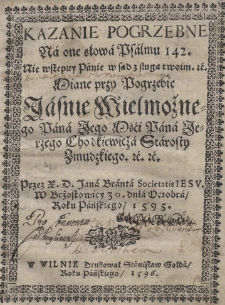 KAZANIE POGRZEBNE
Ná one słowá Psálmu 142.
Nie wstępuy Pánie w sąd z sługą twoim. ꝛc.
Miáne przy Pogrzebie
Jáśnie Wielmożne-
go Páná Jego Mści Páná Je-
rzego Chodkiewiczá Stárosty
Zmudzkiego. ꝛc. ꝛc.
Przez X. D. Janá Brántá Societatis IESV.
W Brzostowicy 30. dniá Octobrá,
Roku Páńskiego, 1595.
W WILNIE Drukował Stánisław Goldá,
Roku Páńskiego, 1596.